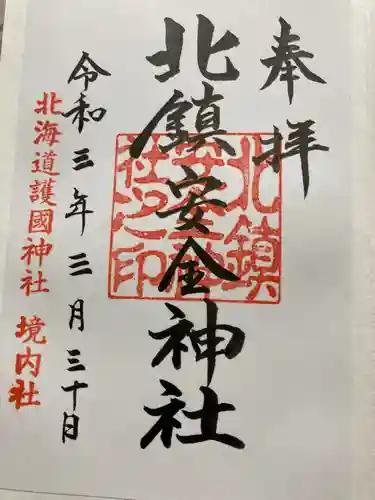 奉拝
北鎮安全神社
北鎮安全神社之印
令和三年三月三十日
北海道護國神社 境内社